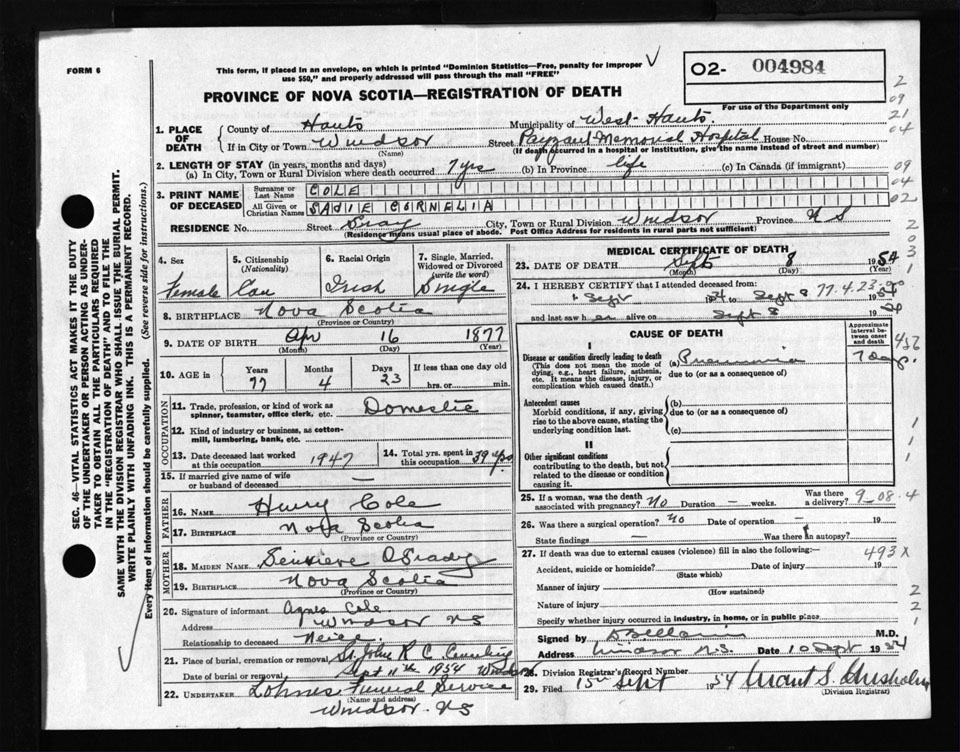 FORM 6
This form, if placed in an envelope, on which is printed "Dominion Statistics—Free, penalty for improper
use $50," and properly addressed will pass through the mail "FREE"
O2- 004984
For use of the Department only
PROVINCE OF NOVA SCOTIA—REGISTRATION OF DEATH
1. PLACE OF DEATH
County of Hants Municipality of West Hants.
If in City or Town Windsor Street Payzant Memorial Hospital House No.
(Name) (If death occurred in a hospital or institution, give the name instead of street and number)
2. LENGTH OF STAY (in years, months and days)
(a) In City, Town or Rural Division where death occurred 7 yrs (b) In Province life (c) In Canada (if immigrant)
3. PRINT NAME OF DECEASED
Surname or Last Name COLE
All Given or Christian Names SADIE CORNELIA
RESIDENCE No. Street Gray City, Town or Rural Division Windsor Province N S
(Residence means usual place of abode. Post Office Address for residents in rural parts not sufficient)
4. Sex Female
5. Citizenship (Nationality) Can
6. Racial Origin Irish
7. Single, Married, Widowed or Divorced (write the word) Single
8. BIRTHPLACE Nova Scotia
(Province or Country)
9. DATE OF BIRTH Apr 16 1877
(Month) (Day) (Year)
10. AGE in Years 77 Months 4 Days 23 If less than one day hrs. or min.
OCCUPATION
11. Trade, profession, or kind of work as spinner, teamster, office clerk, etc. Domestic
12. Kind of industry or business, as cotton-mill, lumbering, bank, etc.
13. Date deceased last worked at this occupation 1947
14. Total yrs. spent in this occupation 39 yrs
15. If married give name of wife or husband of deceased —
FATHER
16. NAME Henry Cole
17. BIRTHPLACE Nova Scotia
(Province or Country)
MOTHER
18. MAIDEN NAME O'Grady
19. BIRTHPLACE Nova Scotia
(Province or Country)
20. Signature of informant Agnes Cole
Address Windsor NS
Relationship to deceased Neice
21. Place of burial, cremation or removal St. John R C Cemetery
Date of burial or removal Sept 11th 1954 Windsor
22. UNDERTAKER Lohnes Funeral Service
(Name and address)
Windsor NS
MEDICAL CERTIFICATE OF DEATH
23. DATE OF DEATH Sept 8 1954
(Month) (Day) (Year)
24. I HEREBY CERTIFY that I attended deceased from:
Sept 1954 to Sept 8 77.4.23
and last saw her alive on Sept 8
CAUSE OF DEATH
Approximate interval between onset and death
I
Disease or condition directly leading to death (a) Pneumonia 7 Days.
(This does not mean the mode of dying, e.g., heart failure, asthenia, etc. It means the disease, injury, or complication which caused death.)
due to (or as a consequence of)
Antecedent causes (b)
Morbid conditions, if any, giving rise to the above cause, stating the underlying condition last.
due to (or as a consequence of)
(c)
II
Other significant conditions
contributing to the death, but not related to the disease or condition causing it.
25. If a woman, was the death associated with pregnancy? No Duration — weeks. Was there a delivery?
9-08-4
26. Was there a surgical operation? No Date of operation — 19
State findings — Was there an autopsy?
27. If death was due to external causes (violence) fill in also the following:— 493X
Accident, suicide or homicide? Date of injury 19
(State which)
Manner of injury
(How sustained)
Nature of injury
Specify whether injury occurred in industry, in home, or in public place
Signed by M.D.
Address Windsor N.S. Date 10 Sept 1954
28. Division Registrar's Record Number
29. Filed 15th Sept 1954 Grant S. Chisholm
(Division Registrar)
SEC. 46—VITAL STATISTICS ACT MAKES IT THE DUTY
OF THE UNDERTAKER OR PERSON ACTING AS UNDER-
TAKER TO OBTAIN ALL THE PARTICULARS REQUIRED
IN THE "REGISTRATION OF DEATH" AND TO FILE THE
SAME WITH THE DIVISION REGISTRAR WHO SHALL ISSUE THE BURIAL PERMIT.
WRITE PLAINLY WITH UNFADING INK. THIS IS A PERMANENT RECORD.
Every item of information should be carefully supplied. (See reverse side for instructions.)